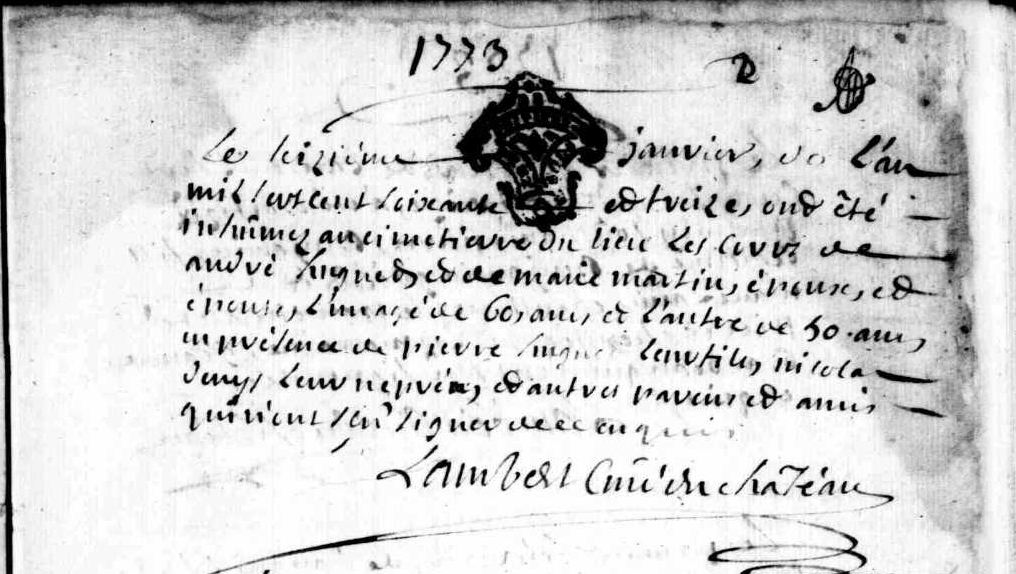 1773 2
Le seizième janvier, de l'an
mil sept cent soixante et treize, ont été
inhûmez au cimetierre du lieu les corps de
andré et de marie martin, épouse, et
épouse, l'un agé de 60 ans, et l'autre de 50 ans,
en présence de pierre leur fils, nicola
leur nepveu, et autres parens et amis
qui n'ont sçu signer de ce enquis
Lambert Curé du chatéau